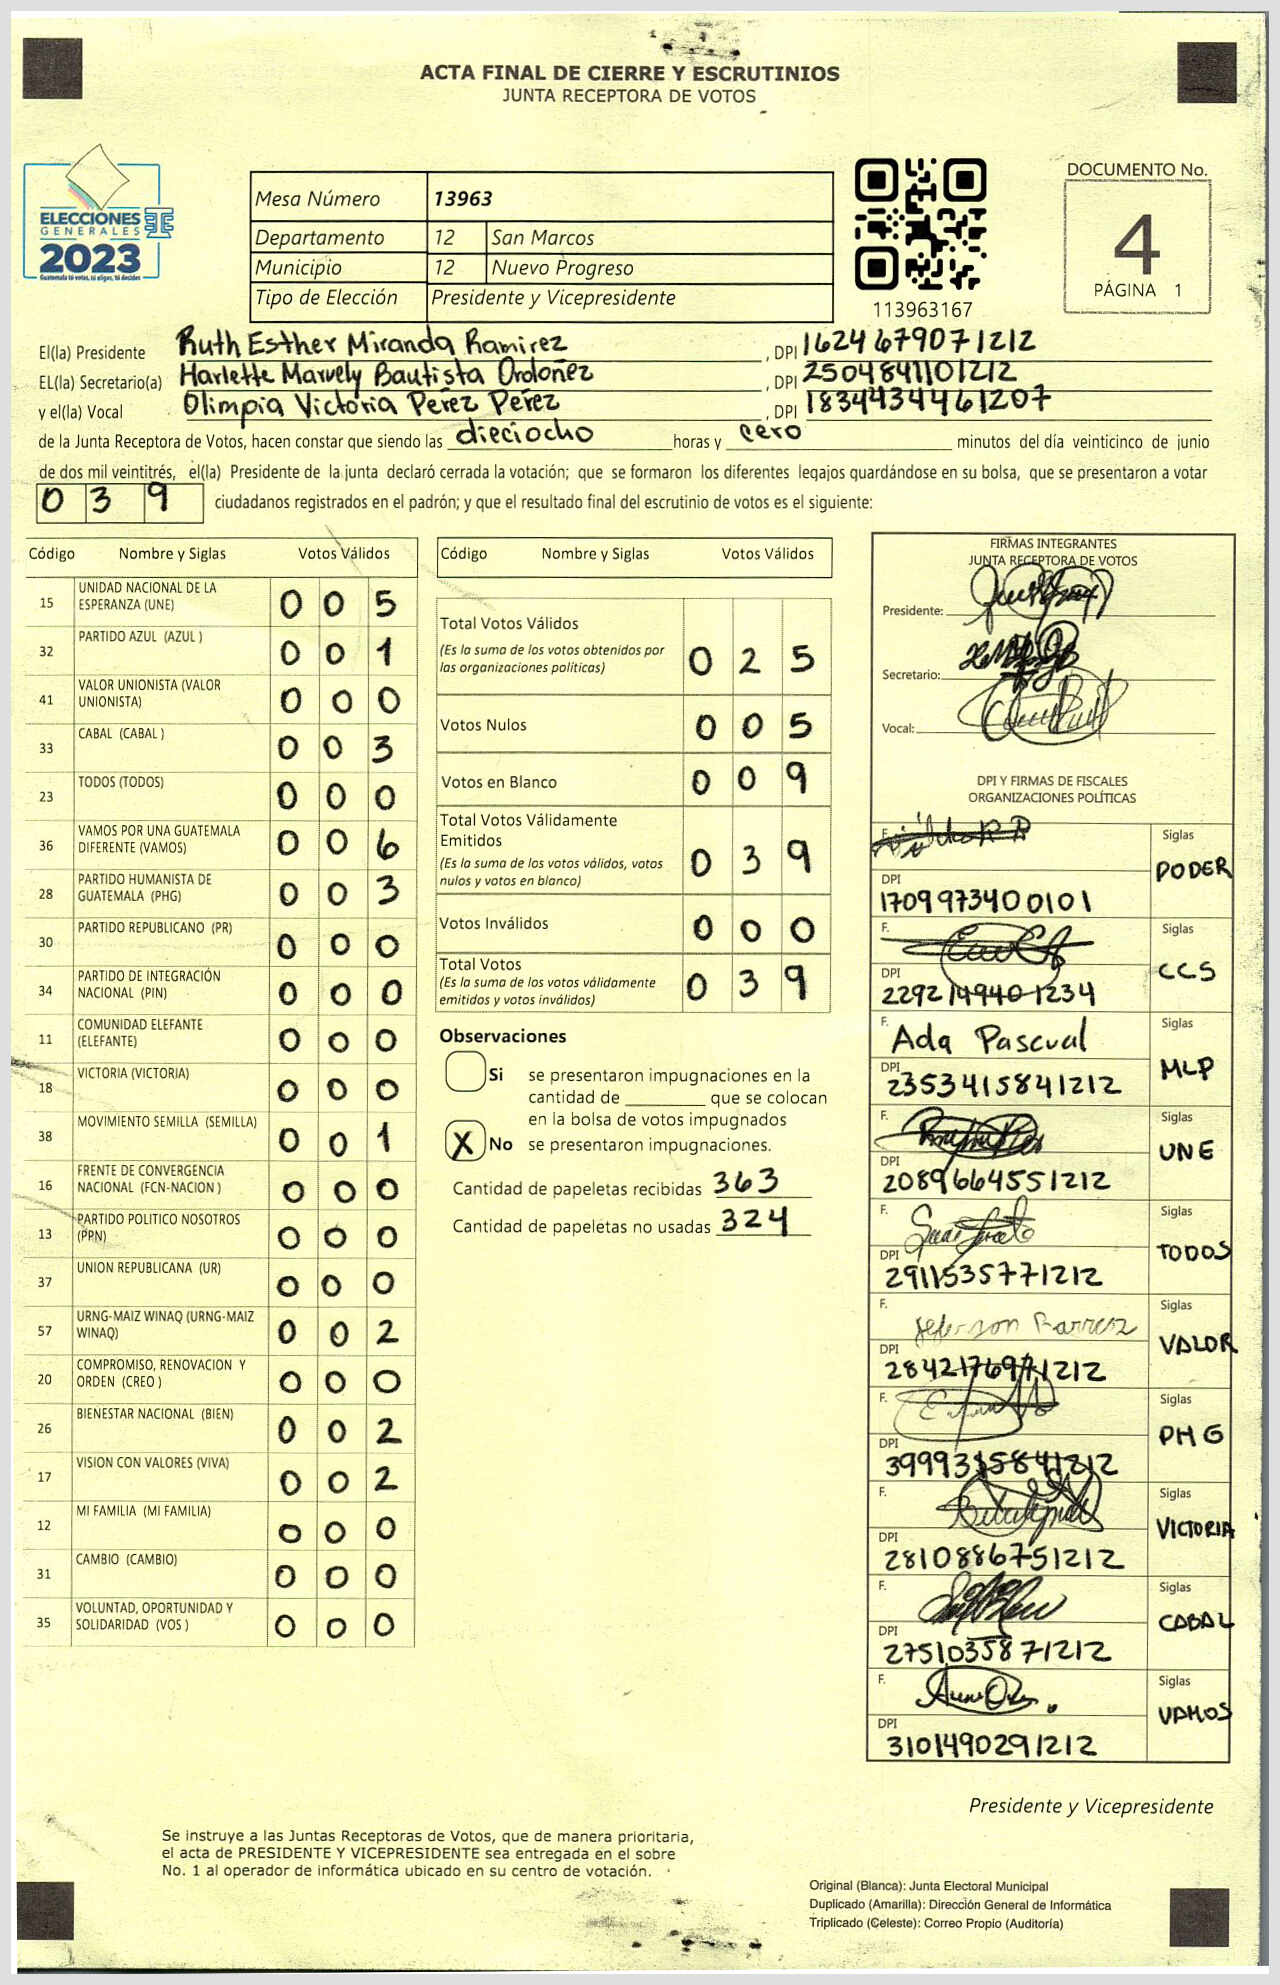 ACTA FINAL DE CIERRE Y ESCRUTINIOS
JUNTA RECEPTORA DE VOTOS
ELECCIONES
GENERALES
2023
Guatemala tú votas, tú eliges, tú decides
Mesa Número 13963
Departamento 12 San Marcos
Municipio 12 Nuevo Progreso
Tipo de Elección Presidente y Vicepresidente
113963167
DOCUMENTO No.
4
PÁGINA 1
El(la) Presidente Ruth Esther Miranda Ramirez, DPI 1624679071212
EL(la) Secretario(a) Harlette Marvely Bautista Ordoñez, DPI 2504841101212
y el(la) Vocal Olimpia Victoria Pérez Pérez, DPI 1834434461207
de la Junta Receptora de Votos, hacen constar que siendo las dieciocho horas y cero minutos del día veinticinco de junio
de dos mil veintitrés, el(la) Presidente de la junta declaró cerrada la votación; que se formaron los diferentes legajos guardándose en su bolsa, que se presentaron a votar
0 3 9 ciudadanos registrados en el padrón; y que el resultado final del escrutinio de votos es el siguiente:
Código Nombre y Siglas Votos Válidos
15 UNIDAD NACIONAL DE LA ESPERANZA (UNE) 0 0 5
32 PARTIDO AZUL (AZUL ) 0 0 1
41 VALOR UNIONISTA (VALOR UNIONISTA) 0 0 0
33 CABAL (CABAL ) 0 0 3
23 TODOS (TODOS) 0 0 0
36 VAMOS POR UNA GUATEMALA DIFERENTE (VAMOS) 0 0 6
28 PARTIDO HUMANISTA DE GUATEMALA (PHG) 0 0 3
30 PARTIDO REPUBLICANO (PR) 0 0 0
34 PARTIDO DE INTEGRACIÓN NACIONAL (PIN) 0 0 0
11 COMUNIDAD ELEFANTE (ELEFANTE) 0 0 0
18 VICTORIA (VICTORIA) 0 0 0
38 MOVIMIENTO SEMILLA (SEMILLA) 0 0 1
16 FRENTE DE CONVERGENCIA NACIONAL (FCN-NACION ) 0 0 0
13 PARTIDO POLITICO NOSOTROS (PPN) 0 0 0
37 UNION REPUBLICANA (UR) 0 0 0
57 URNG-MAIZ WINAQ (URNG-MAIZ WINAQ) 0 0 2
20 COMPROMISO, RENOVACION Y ORDEN (CREO ) 0 0 0
26 BIENESTAR NACIONAL (BIEN) 0 0 2
17 VISION CON VALORES (VIVA) 0 0 2
12 MI FAMILIA (MI FAMILIA) 0 0 0
31 CAMBIO (CAMBIO) 0 0 0
35 VOLUNTAD, OPORTUNIDAD Y SOLIDARIDAD (VOS ) 0 0 0
Código Nombre y Siglas Votos Válidos
Total Votos Válidos
(Es la suma de los votos obtenidos por
las organizaciones políticas) 0 2 5
Votos Nulos 0 0 5
Votos en Blanco 0 0 9
Total Votos Válidamente
Emitidos
(Es la suma de los votos válidos, votos
nulos y votos en blanco) 0 3 9
Votos Inválidos 0 0 0
Total Votos
(Es la suma de los votos válidamente
emitidos y votos inválidos) 0 3 9
Observaciones
Si se presentaron impugnaciones en la
cantidad de ________ que se colocan
en la bolsa de votos impugnados
X No se presentaron impugnaciones.
Cantidad de papeletas recibidas 363
Cantidad de papeletas no usadas 324
FIRMAS INTEGRANTES
JUNTA RECEPTORA DE VOTOS
Presidente:
Secretario:
Vocal:
DPI Y FIRMAS DE FISCALES
ORGANIZACIONES POLÍTICAS
F. Siglas PODER
DPI 1709973400101
F. Siglas CCS
DPI 2292149401234
F. Ada Pascual Siglas MLP
DPI 2353415841212
F. Siglas UNE
DPI 2089664551212
F. Siglas TODOS
DPI 2911535771212
F. Jeferson Siglas VALOR
DPI 2842176971212
F. Siglas PHG
DPI 3999315841212
F. Siglas VICTORIA
DPI 2810886751212
F. Siglas CABAL
DPI 2751035871212
F. Siglas VAMOS
DPI 3101490291212
Presidente y Vicepresidente
Se instruye a las Juntas Receptoras de Votos, que de manera prioritaria,
el acta de PRESIDENTE Y VICEPRESIDENTE sea entregada en el sobre
No. 1 al operador de informática ubicado en su centro de votación.
Original (Blanca): Junta Electoral Municipal
Duplicado (Amarilla): Dirección General de Informática
Triplicado (Celeste): Correo Propio (Auditoría)